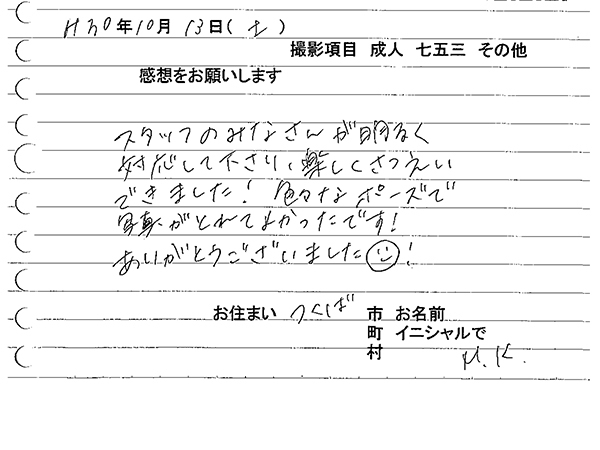 H30年10月13日(土)
撮影項目 成人 七五三 その他
感想をお願いします
スタッフのみなさんが明るく
対応して下さり、楽しくさつえい
できました！色々なポーズで
写真がとれてよかったです！
ありがとうございました！
お住まい つくば 市 お名前
町 イニシャルで
村 M.K.